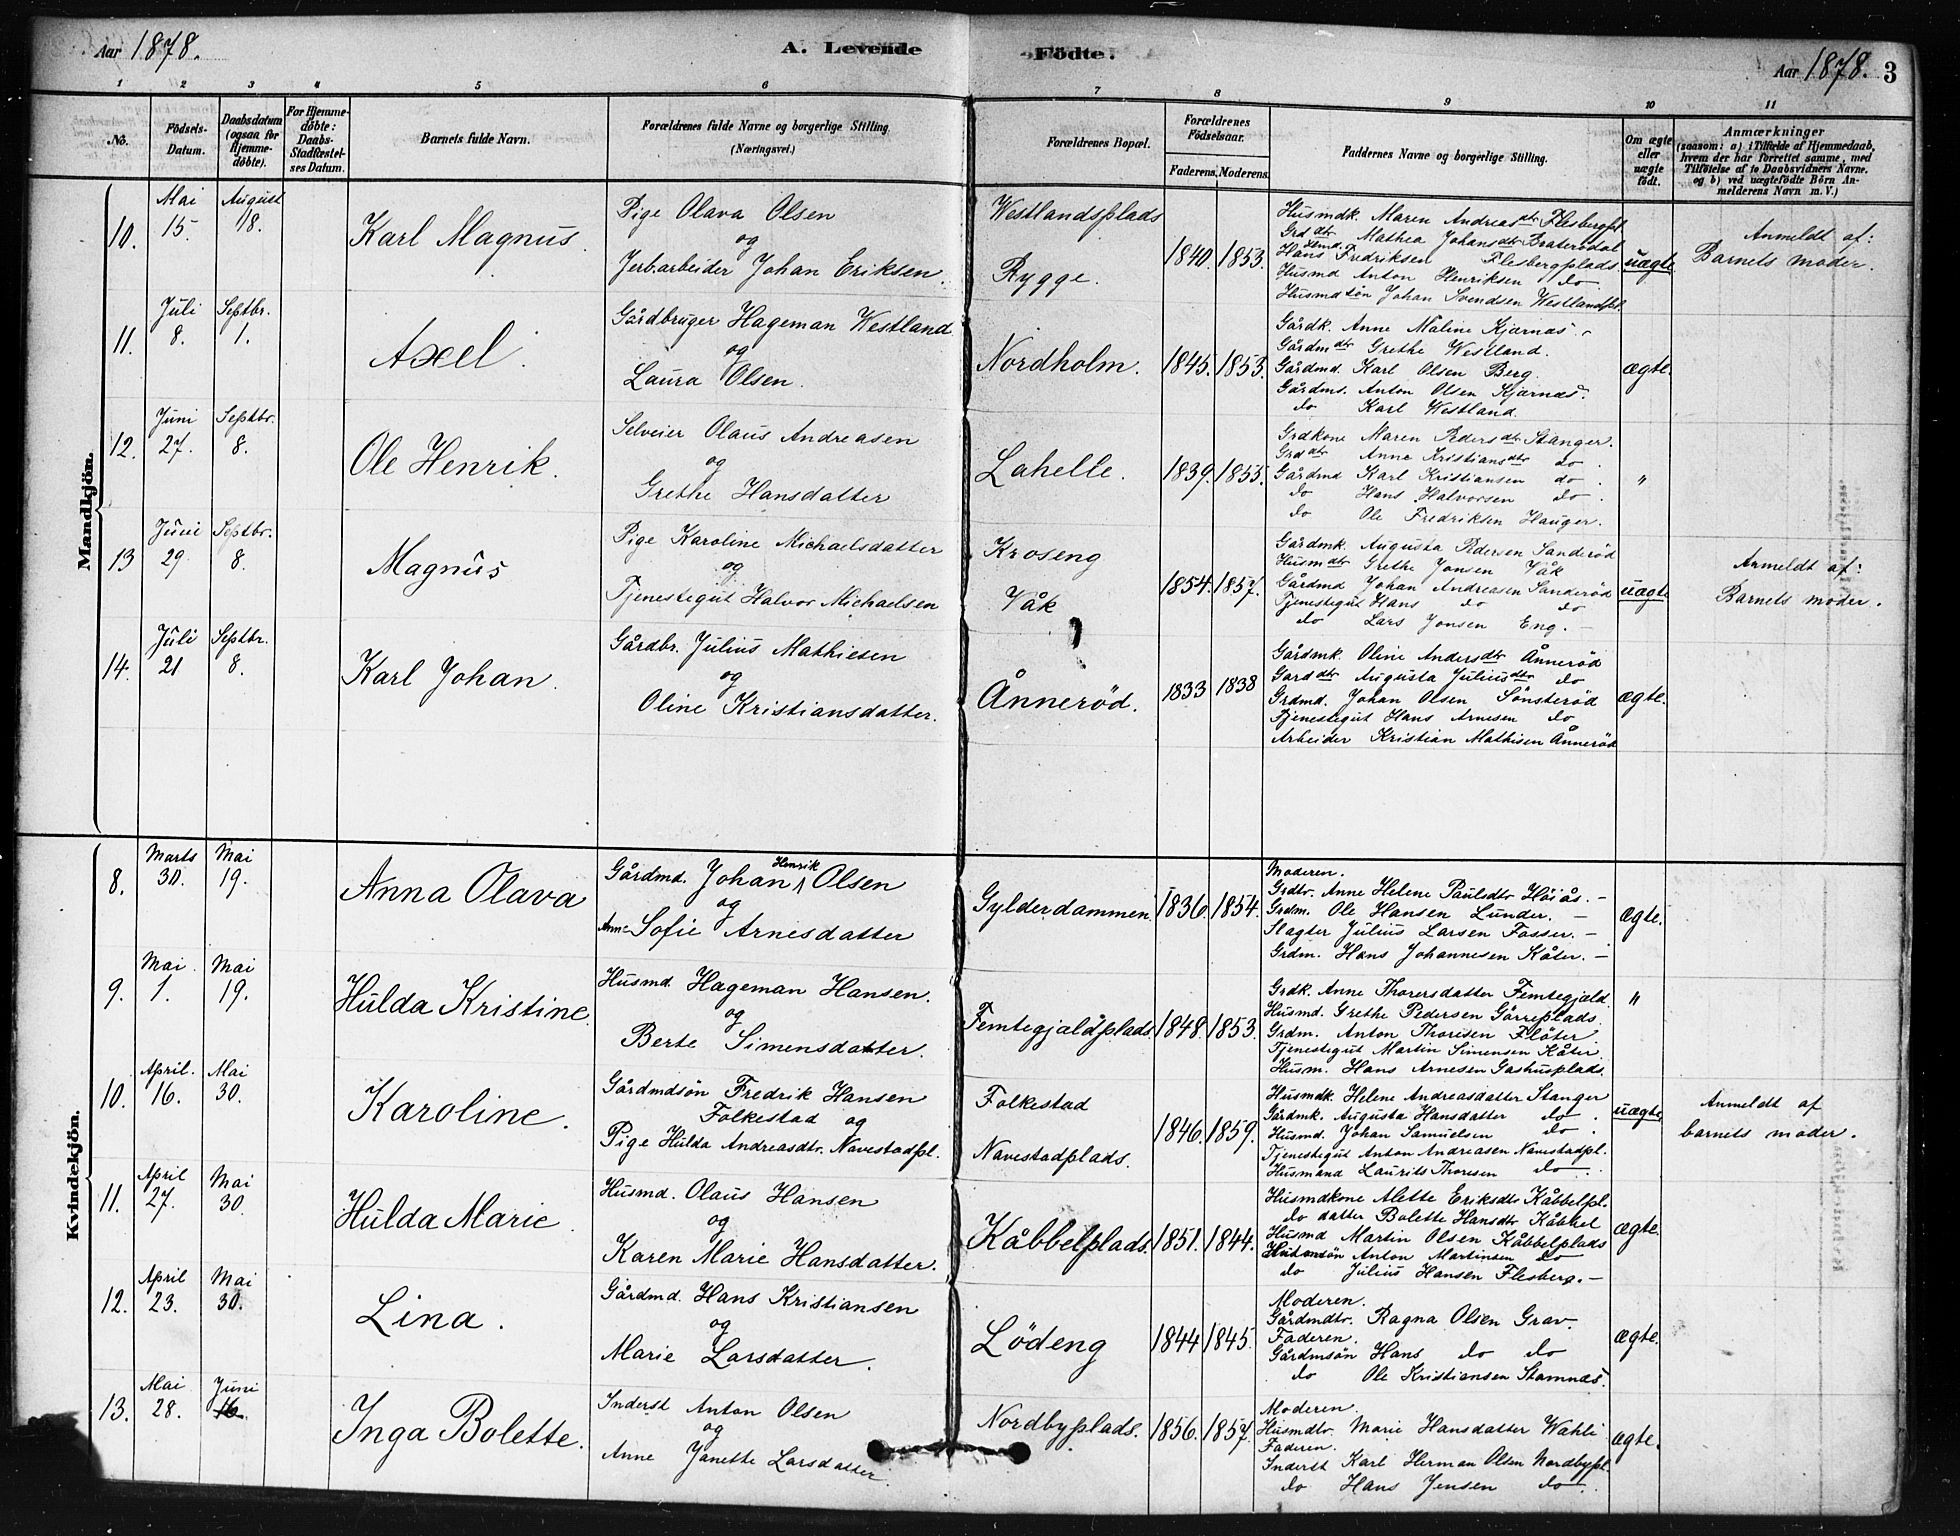 Aar 1878.
A. Levende
Födte.
Aar 1878. 3
1 2 3 4 5 6 7 8 9 10 11
No.
Födsels-Datum.
Daabsdatum (ogsaa for Hjemmedöbte).
For Hjemmedöbte: Daabs-Stadfæstelses Datum.
Barnets fulde Navn.
Forældrenes fulde Navne og borgerlige Stilling. (Næringsvei.)
Forældrenes Bopæl.
Forældrenes Födselsaar.
Faderens. Moderens.
Faddernes Navne og borgerlige Stilling.
Om ægte eller uægte födt.
Anmærkninger (saasom: a) i Tilfælde af Hjemmedaab, hvem der har forrettet samme, med Tilföielse af to Daabsvidners Navne. og b) ved uægtefödte Börn Anmelderens Navn m. V.)
Mandkjön.
10. Mai 15. August 18.
Karl Magnus.
Pige Olava Olsen
og
Jerb.arbeider Johan Eriksen.
Westlandsplads
Rygge.
1840. 1853.
Husmdk. Maren Andreasdtr Flesbergpl
Grddtr Mathea Johansdtr Braterödal
Husmd. Hans Fredriksen Flesbergplads
Husmd Anton Henriksen do.
Husmdsön Johan Svendsen Westlandspl.
uægte
Anmeldt af:
Barnets moder.
11. Juli 8. Septbr. 1.
Axel.
Gårdbruger Hageman Westland
og
Laura Olsen.
Nordholm.
1845. 1853.
Gårdk. Anne Maline Kjærnæs.
Gårdmdtr Grethe Westland.
Gårdmd. Karl Olsen Berg.
Gårdms. Anton Olsen Kjærnæs.
do Karl Westland.
ægte.
12. Juni 27. Septbr. 8.
Ole Henrik.
Selveier Olaus Andreasen
og
Grethe Hansdatter
Lahelle.
1839. 1855.
Grdkone Maren Pedersdtr Stanger.
Grddtr Anne Kristiansdtr do.
Gårdmd Karl Kristiansen do.
do Hans Halvorsen do.
do Ole Fredriksen Hauger.
"
13 Juni 29. Septbr. 8.
Magnus
Pige Karoline Michaelsdatter
og
Tjenestegut Halvor Michaelsen
Kroseng
Våk
1854. 1857.
Gårdmk. Augusta Pedersen Sanderöd
Husmdtr Grethe Jonsen Våk
Gårdmd Johan Andreasen Sanderöd
Tjenestegut Hans do do
do Lars Jonsen Eng.
uægte
Anmeldt af:
Barnets moder.
14. Juli 21 Septbr. 8.
Karl Johan.
Gårdbr. Julius Mathiesen
og
Oline Kristiansdatter.
Ånneröd.
1833 1838
Gårdmk. Oline Andersdtr Ånneröd
Gårddtr Augusta Juliusdtr do
Grdmd. Johan Olsen Sönsteröd
Tjenestegut Hans Arnesen do
Arbeider Kristian Mathisen Ånneröd
ægte.
Kvindekjön.
8. Marts 30. Mai 19.
Anna Olava
Gårdmd. Johan Henrik Olsen
og
Anne Sofie Arnesdatter
Gylderdammen.
1836. 1854.
Moderen.
Grdtr. Anne Helene Paulsdtr Höiås.
Grdm. Ole Hansen Lunder.
Slagter Julius Larsen Fosser.
Grdm. Hans Johannesen Kåter.
ægte.
9. Mai 1. Mai 19.
Hulda Kristine.
Husmd. Hageman Hansen.
og
Berte Simensdatter.
Femtegjældplads.
1848. 1853.
Grdk. Anne Thorersdatter Femtegjæld
Husmd. Grethe Pedersen Gårreplads
Grdm. Anton Thoresen Flöter
Tjenestegut Martin Simensen Kåter.
Husm. Hans Arnesen Gashusplads.
"
10. April. 16. Mai 30.
Karoline.
Gårdmdsön Fredrik Hansen
Folkestad og
Pige Hulda Andreasdtr. Navestadpl.
Folkestad
Navestadplads.
1846. 1859.
Husmdk. Helene Andreasdatter Stanger
Gårdmk. Augusta Hansdatter do.
Husmd. Johan Samuelsen do.
Tjenestegut Anton Andreasen Navestadpl.
Husmand Laurits Thoresen do.
uægte
Anmeldt af
barnets moder.
11. April 27. Mai 30.
Hulda Marie.
Husmd. Olaus Hansen
og
Karen Marie Hansdatter.
Kåbbelplads.
1851. 1844.
Husmdkone Alette Eriksdtr Kåbbelpl.
do datter Bolette Hansdtr Kåbbel
Husmd Martin Olsen Kåbbelplads
Husmsön Anton Martinsen do
do Julius Hansen Flesberg.
ægte.
12. April 23. Mai 30.
Lina.
Gårdmd. Hans Kristiansen
og
Marie Larsdatter.
Lödeng
1844 1845.
Moderen.
Gårdmdtr. Ragna Olsen Grav.
Faderen.
Gårdmsön Hans do do
do Ole Kristiansen Stamnæs.
ægte.
13. Mai 28. Juni 16.
Inga Bolette.
Inderst Anton Olsen
og
Anne Janette Larsdatter.
Nordbyplads.
1856. 1857.
Moderen.
Husmdtr. Marie Hansdatter Wahli
Faderen.
Inderst Karl Herman Olsen Nordbypl.
do Hans Jensen do.
ægte.